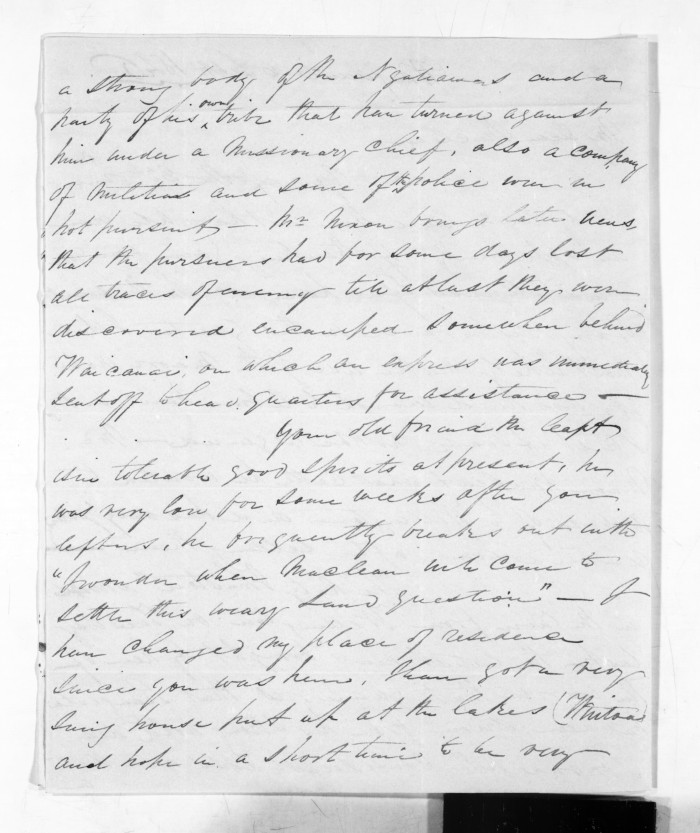 a strong body of the Ngatiawas and a
party of his own tribe that have turned against
him under a Missionary Chief, also a company
of Militia and some of the police were in
"hot pursuit" — Mr Nixon brings later news,
that the pursuers had for some days lost
all traces of enemy till at last they were
discovered encamped somewhere behind
Waicanai, on which an express was immediately
sent off to head quarters for assistance —
Your old friend the Capt
is in tolerable good spirits at present, he
was very low for some weeks after you
left us, he frequently breaks out with
"I wonder when Maclean will come to
settle this weary Land question" — I
have changed my place of residence
since you was here, I have got a very
snug house put up at the lakes
and hope in a short time to be very